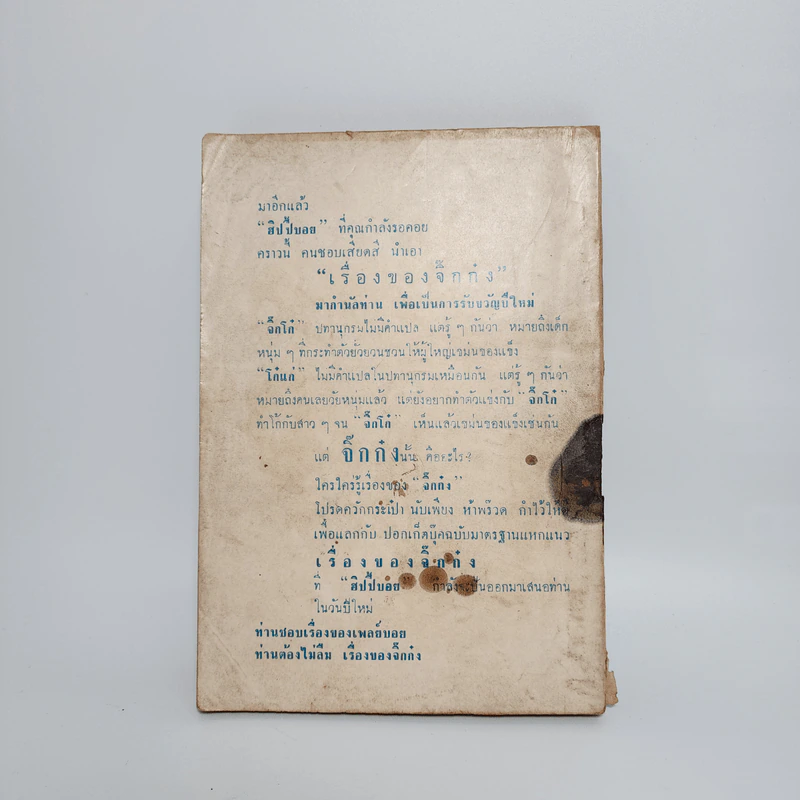 มาอีกแล้ว
“ฮิปปี้บอย” ที่คุณกำลังรอคอย
คราวนี้ คนชอบเสียดสี นำเอา
“เรื่องของจิ๊กก๋ง”
มากำนัลท่าน เพื่อเป็นการรับขวัญปีใหม่
“จิ๊กโก๋” ปทานุกรมไม่มีคำแปล แต่รู้ ๆ กันว่า หมายถึงเด็ก
หนุ่ม ๆ ที่กระทำตัวยั่วยวนชวนให้ผู้ใหญ่เขม่นของแข็ง
“โก๋แก่” ไม่มีคำแปลในปทานุกรมเหมือนกัน แต่รู้ ๆ กันว่า
หมายถึงคนเลยวัยหนุ่มแล้ว แต่ยังอยากทำตัวแข่งกับ “จิ๊กโก๋”
ทำโก้กับสาว ๆ จน “จิ๊กโก๋” เห็นแล้วเขม่นของแข็งเช่นกัน
แต่ จิ๊กก๋ง นั้น คืออะไร?
ใครใคร่รู้เรื่องของ “จิ๊กก๋ง”
โปรดควักกระเป๋า นับเพียง ห้าพรืวด กำไว้ให้ดี
เพื่อแลกกับ ปอกเก็ตบุ๊คฉบับมาตรฐานแหกแนว
เรื่องของจิ๊กก๋ง
ที่ “ฮิปปี้บอย” กำลังจะปั้นออกมาเสนอท่าน
ในวันปีใหม่
ท่านชอบเรื่องของเพลย์บอย
ท่านต้องไม่ลืม เรื่องของจิ๊กก๋ง